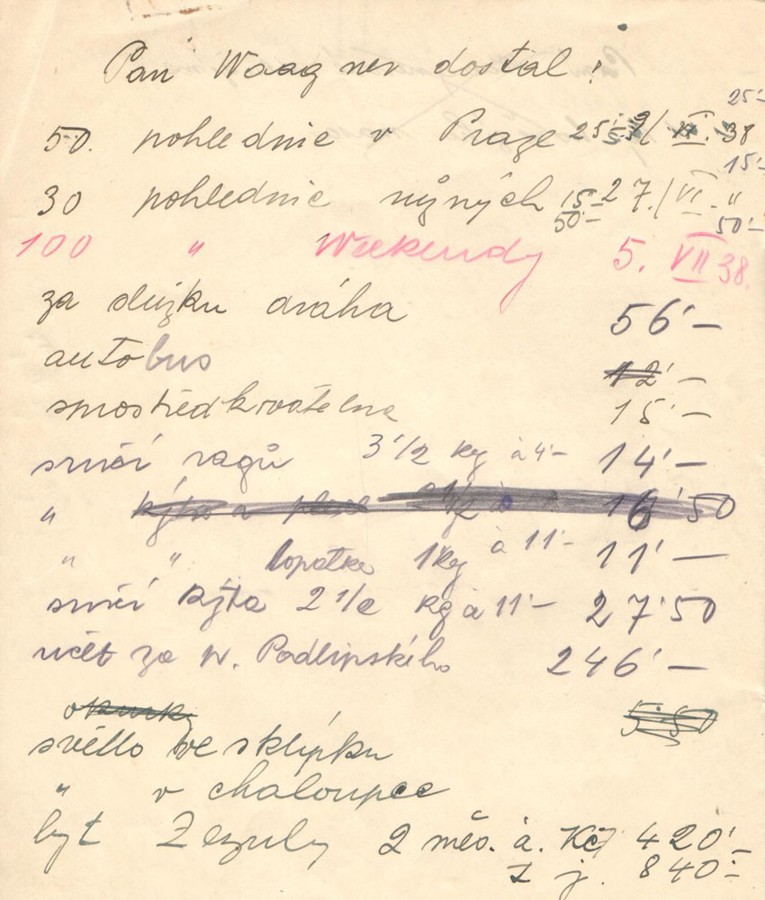 Pan Waag nev dostal!
25'-
50. pohlednic v Praze 25'- 9/ VI. 38
15'-
30 pohlednic různých 15- 27./VI. "
50'- 50'-
100 " Weekendy 5. VII 38.
za služku dráha 56'-
autobus 12'-
zprostředkovatelna 15'-
srnčí ragů 3 1/2 kg à 4'- 14'-
" kýta a plece 16'50
" " lopatka 1kg à 11'- 11'-
srnčí kýta 2 1/2 kg à 11'- 27'50
účet za p. Podlipského 246'-
okurky 5'50
světlo ve sklípku
" v chaloupce
byt Zezuly 2 měs. à. Kč 420'-
z j. 840'-